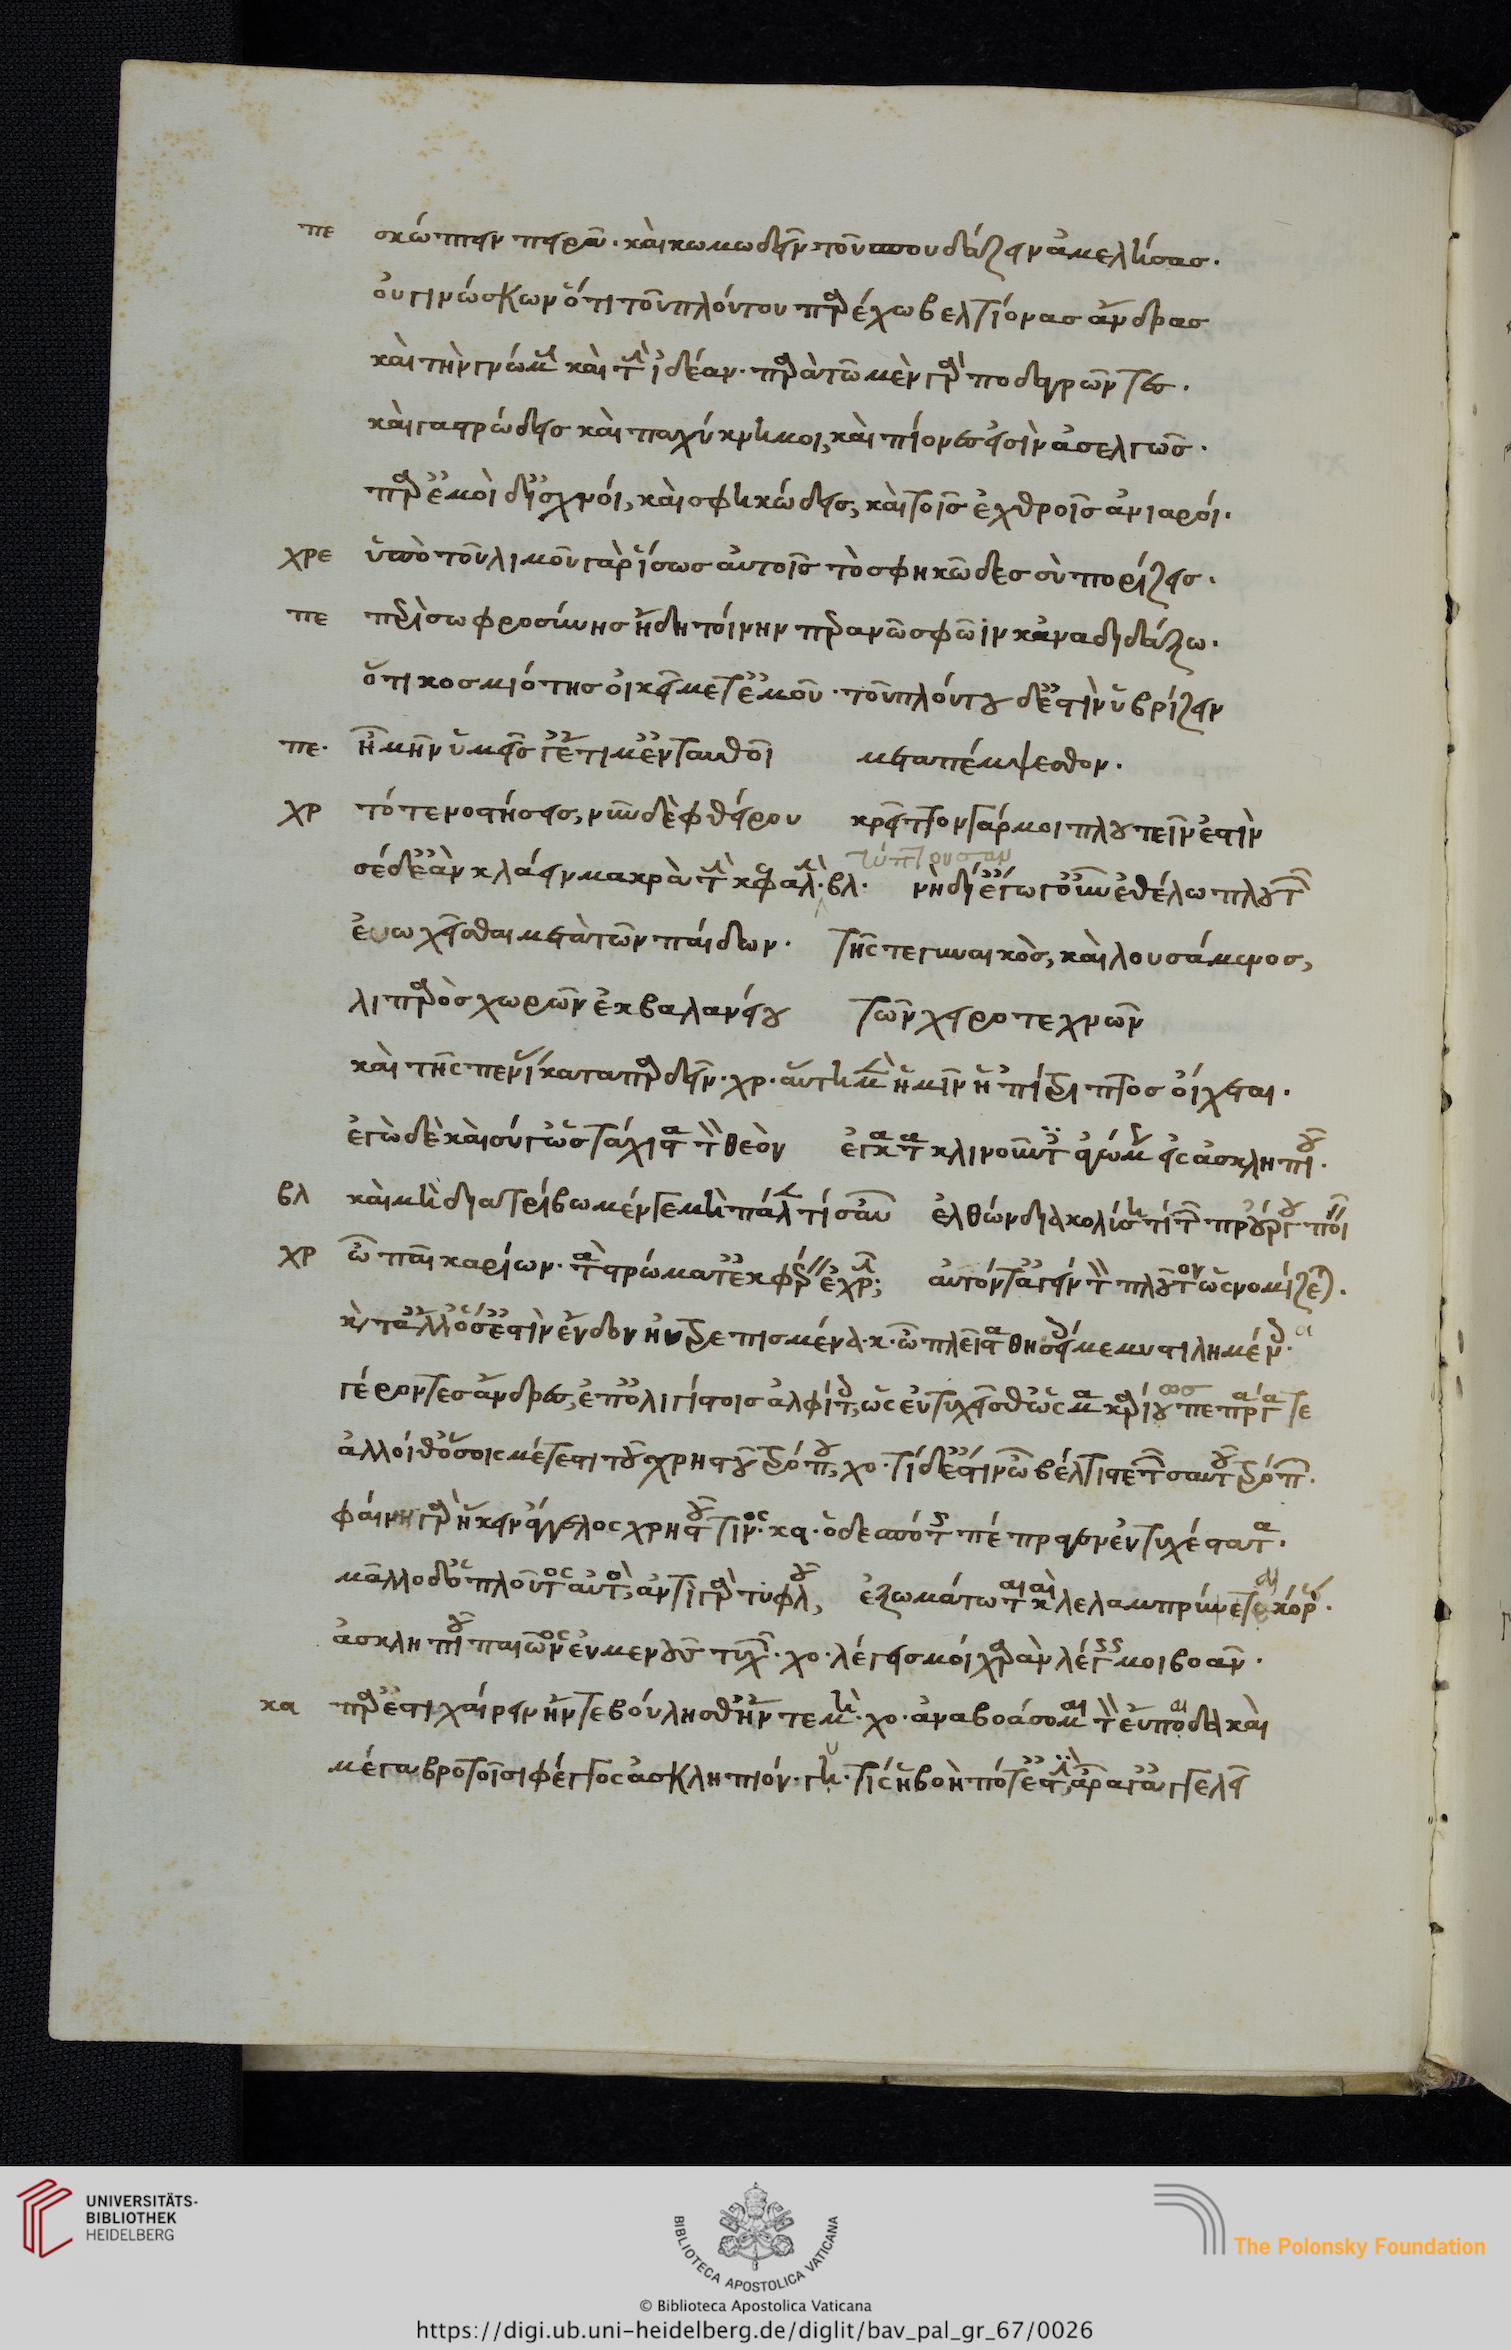 πε σκώπτειν πειρᾶ· καὶ κωμωδεῖν τοῦ σπουδάζειν ἀμελήσας·
οὐ γινώσκων ὅτι τοῦ πλούτου παρέχω βελτίονας ἄνδρας
καὶ τὴν γνώμην καὶ τὴν ἰδέαν· παρὰ τῶ μὲν γὰρ ποδαγρῶντες·
καὶ γαστρώδεις καὶ παχύκνημοι, καὶ πίονες εἰσὶν ἀσελγῶς·
παρ' ἐμοὶ δ' ἰσχνοί, καὶ σφηκώδεις, καὶ τοῖς ἐχθροῖς ἀνιαροί·
χρε ὑπὸ τοῦ λιμοῦ γὰρ ἴσως αὐτοῖς τὸ σφηκῶδες σὺ πορίζεις·
πε περὶ σωφροσύνης ἤδη τοίνυν περανῶ σφῶιν κἀναδιδάξω·
ὅτι κοσμιότης οἰκεῖ μετ' ἐμοῦ· τοῦ πλούτου δ' ἐστὶν ὑβρίζειν
πε· ἦ μὴν ὑμεῖς γ' ἔτι μ' ἐνταυθοῖ μεταπέμψεσθον·
χρ τότε νοστήσεις, νῦν δὲ φθείρου κρεῖττον γάρ μοι πλουτεῖν ἐστὶν
τύπτουσαν
σὲ δ' ἐὰν κλάειν μακρὰ τὴν κεφαλήν· βλ· νὴ δί' ἔγωγ' οὖν ἐθέλω πλουτῶν
εὐωχεῖσθαι μετὰ τῶν παίδων· τῆς τε γυναικὸς, καὶ λουσάμενος,
λιπαρὸς χωρῶν ἐκ βαλανείου τῶν χειροτεχνῶν
καὶ τῆς πενίας καταπαρδεῖν· χρ· αὕτη μὲν ἡμῖν ἡ πίτριπτος οἴχεται·
ἐγὼ δὲ καὶ σύ γ' ὡς τάχιστα τὸν θεὸν ἐγκατακλινοῦντ' ἄγωμεν εἰς ἀσκληπιοῦ·
βλ καὶ μὴ διατρίβωμέν γε μὴ πάλιν τίς αὖ ἐλθὼν διακολύση τί τῶν προὔργου ποιεῖν
χρ ὦ παῖ καρίων· τὰ στρώματ' ἐκφέρειν ἐχρῆν; αὐτόν τ' ἄγειν τὸν πλοῦτον ὡς νομίζεται·
καὶ τἄλλ' ὅσ' ἐστὶν ἔνδον ηὐτρεπισμένα· κ· ὦ πλεῖστα θησείοις μεμυστιλημένοι·
γέροντες ἄνδρες, ἐπ' ὀλιγίστοις ἀλφίτοις, ὡς εὐτυχεῖσθ' ὡς μακαρίως πεπράγατε
ἄλλοι θ' ὅσοις μέτεστι τοῦ χρηστοῦ τρόπου, χο· τί δ' ἔστιν ὦ βέλτιστε τῶν σαυτοῦ τρόπων·
φαίνη γὰρ ἥκειν ἄγγελος χρηστοῦ τινος· κα· ὁ δεσπότης πέπραγεν εὐτυχέστατα·
μᾶλλο δ' ὁ πλοῦτος αὐτός, ἀντὶ γὰρ τυφλοῦ, ἐξωμάτωται καὶ λελαμπρύνεται κόρας·
ἀσκληπιοῦ παιῶνος εὐμενοῦς τυχών· χο· λέγεις μοί χαρὰν λέγεις μοι βοάν·
κα πάρεστι χαίρειν ἤν τε βούλησθ' ἤν τε μή· χο· ἀναβοάσομαι τὸν εὔπαιδα καὶ
μέγα βροτοῖσι φέγγος ἀσκληπιόν· γυ· τίς ἡ βοὴ πότ' ἐστιν, ἆρα γ' ἀγγελεῖ
UNIVERSITÄTS-
BIBLIOTHEK
HEIDELBERG
BIBLIOTECA APOSTOLICA VATICANA
The Polonsky Foundation
© Biblioteca Apostolica Vaticana
https://digi.ub.uni-heidelberg.de/diglit/bav_pal_gr_67/0026